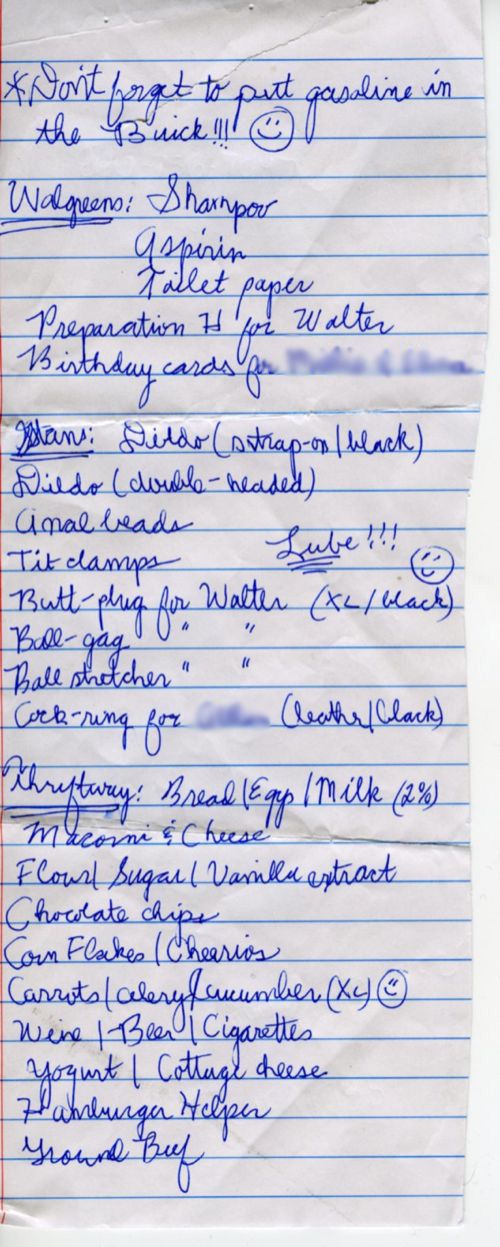 *Don't forget to putt gasoline in
the Buick!!!
Walgreens: Shampoo
Aspirin
Toilet paper
Preparation H for Walter
Birthday cards for
Stans: Dildo (strap-on/black)
Dildo (double-headed)
Anal beads
Lube!!!
Tit clamps
Butt-plug for Walter (XL/black)
Ball-gag " "
Ball stretcher " "
Cock-ring for (leather/black)
Thryftway: Bread/Eggs/Milk (2%)
Macorni & Cheese
Flour/Sugar/Vanilla extract
Chocolate chips
Corn Flakes/Cheerios
Carrots/celery/cucumber (XL)
Wine/Beer/Cigarettes
Yogurt/Cottage cheese
Hamburger Helper
Ground Beef